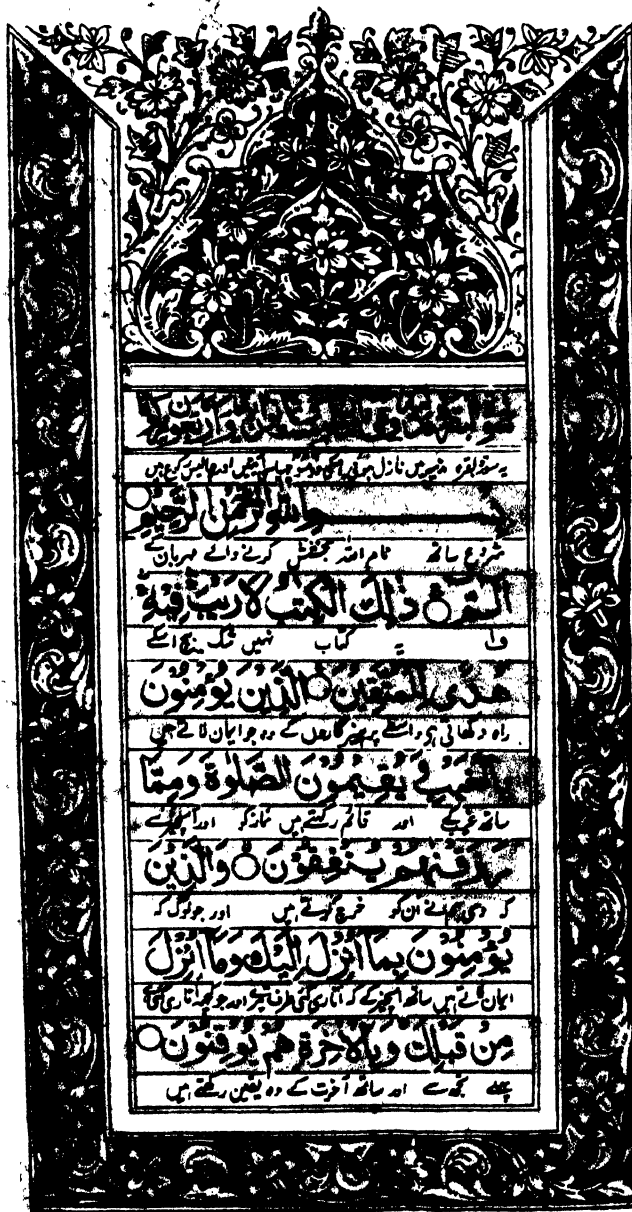 یہ سورۃ بقرہ مدینہ میں نازل ہوئی اسکی دو سو چھیاسی آیتیں اور چالیس رکوع ہیں
اللهِ الرَّحْمٰنِ الرَّحِيْمِ
شروع ساتھ نام اللہ بخشش کرنے والے مہربان کے
الٓمّٓ ذٰلِكَ الْكِتٰبُ لَا رَيْبَ فِيْهِ
یہ کتاب نہیں شک بیچ اسکے
هُدًى لِّلْمُتَّقِيْنَ الَّذِيْنَ يُؤْمِنُوْنَ
راہ دکھاتی ہی واسطے پرہیزگاروں کے وہ جو ایمان لاتے ہیں
بِالْغَيْبِ وَيُقِيْمُوْنَ الصَّلٰوةَ وَمِمَّا
ساتھ غیب کے اور قائم رکھتے ہیں نماز کو اور اسچیز سے
رَزَقْنٰهُمْ يُنْفِقُوْنَ وَالَّذِيْنَ
کہ دی ہم نے ان کو خرچ کرتے ہیں اور جو لوگ کہ
يُؤْمِنُوْنَ بِمَا اُنْزِلَ اِلَيْكَ وَمَا اُنْزِلَ
ایمان لاتے ہیں ساتھ اسچیز کے کہ اتاری گئی طرف تیرے اور جو کچھ اتاری گئی
مِنْ قَبْلِكَ وَبِالْاٰخِرَةِ هُمْ يُوْقِنُوْنَ
پہلے تجھ سے اور ساتھ آخرت کے وہ یقین رکھتے ہیں